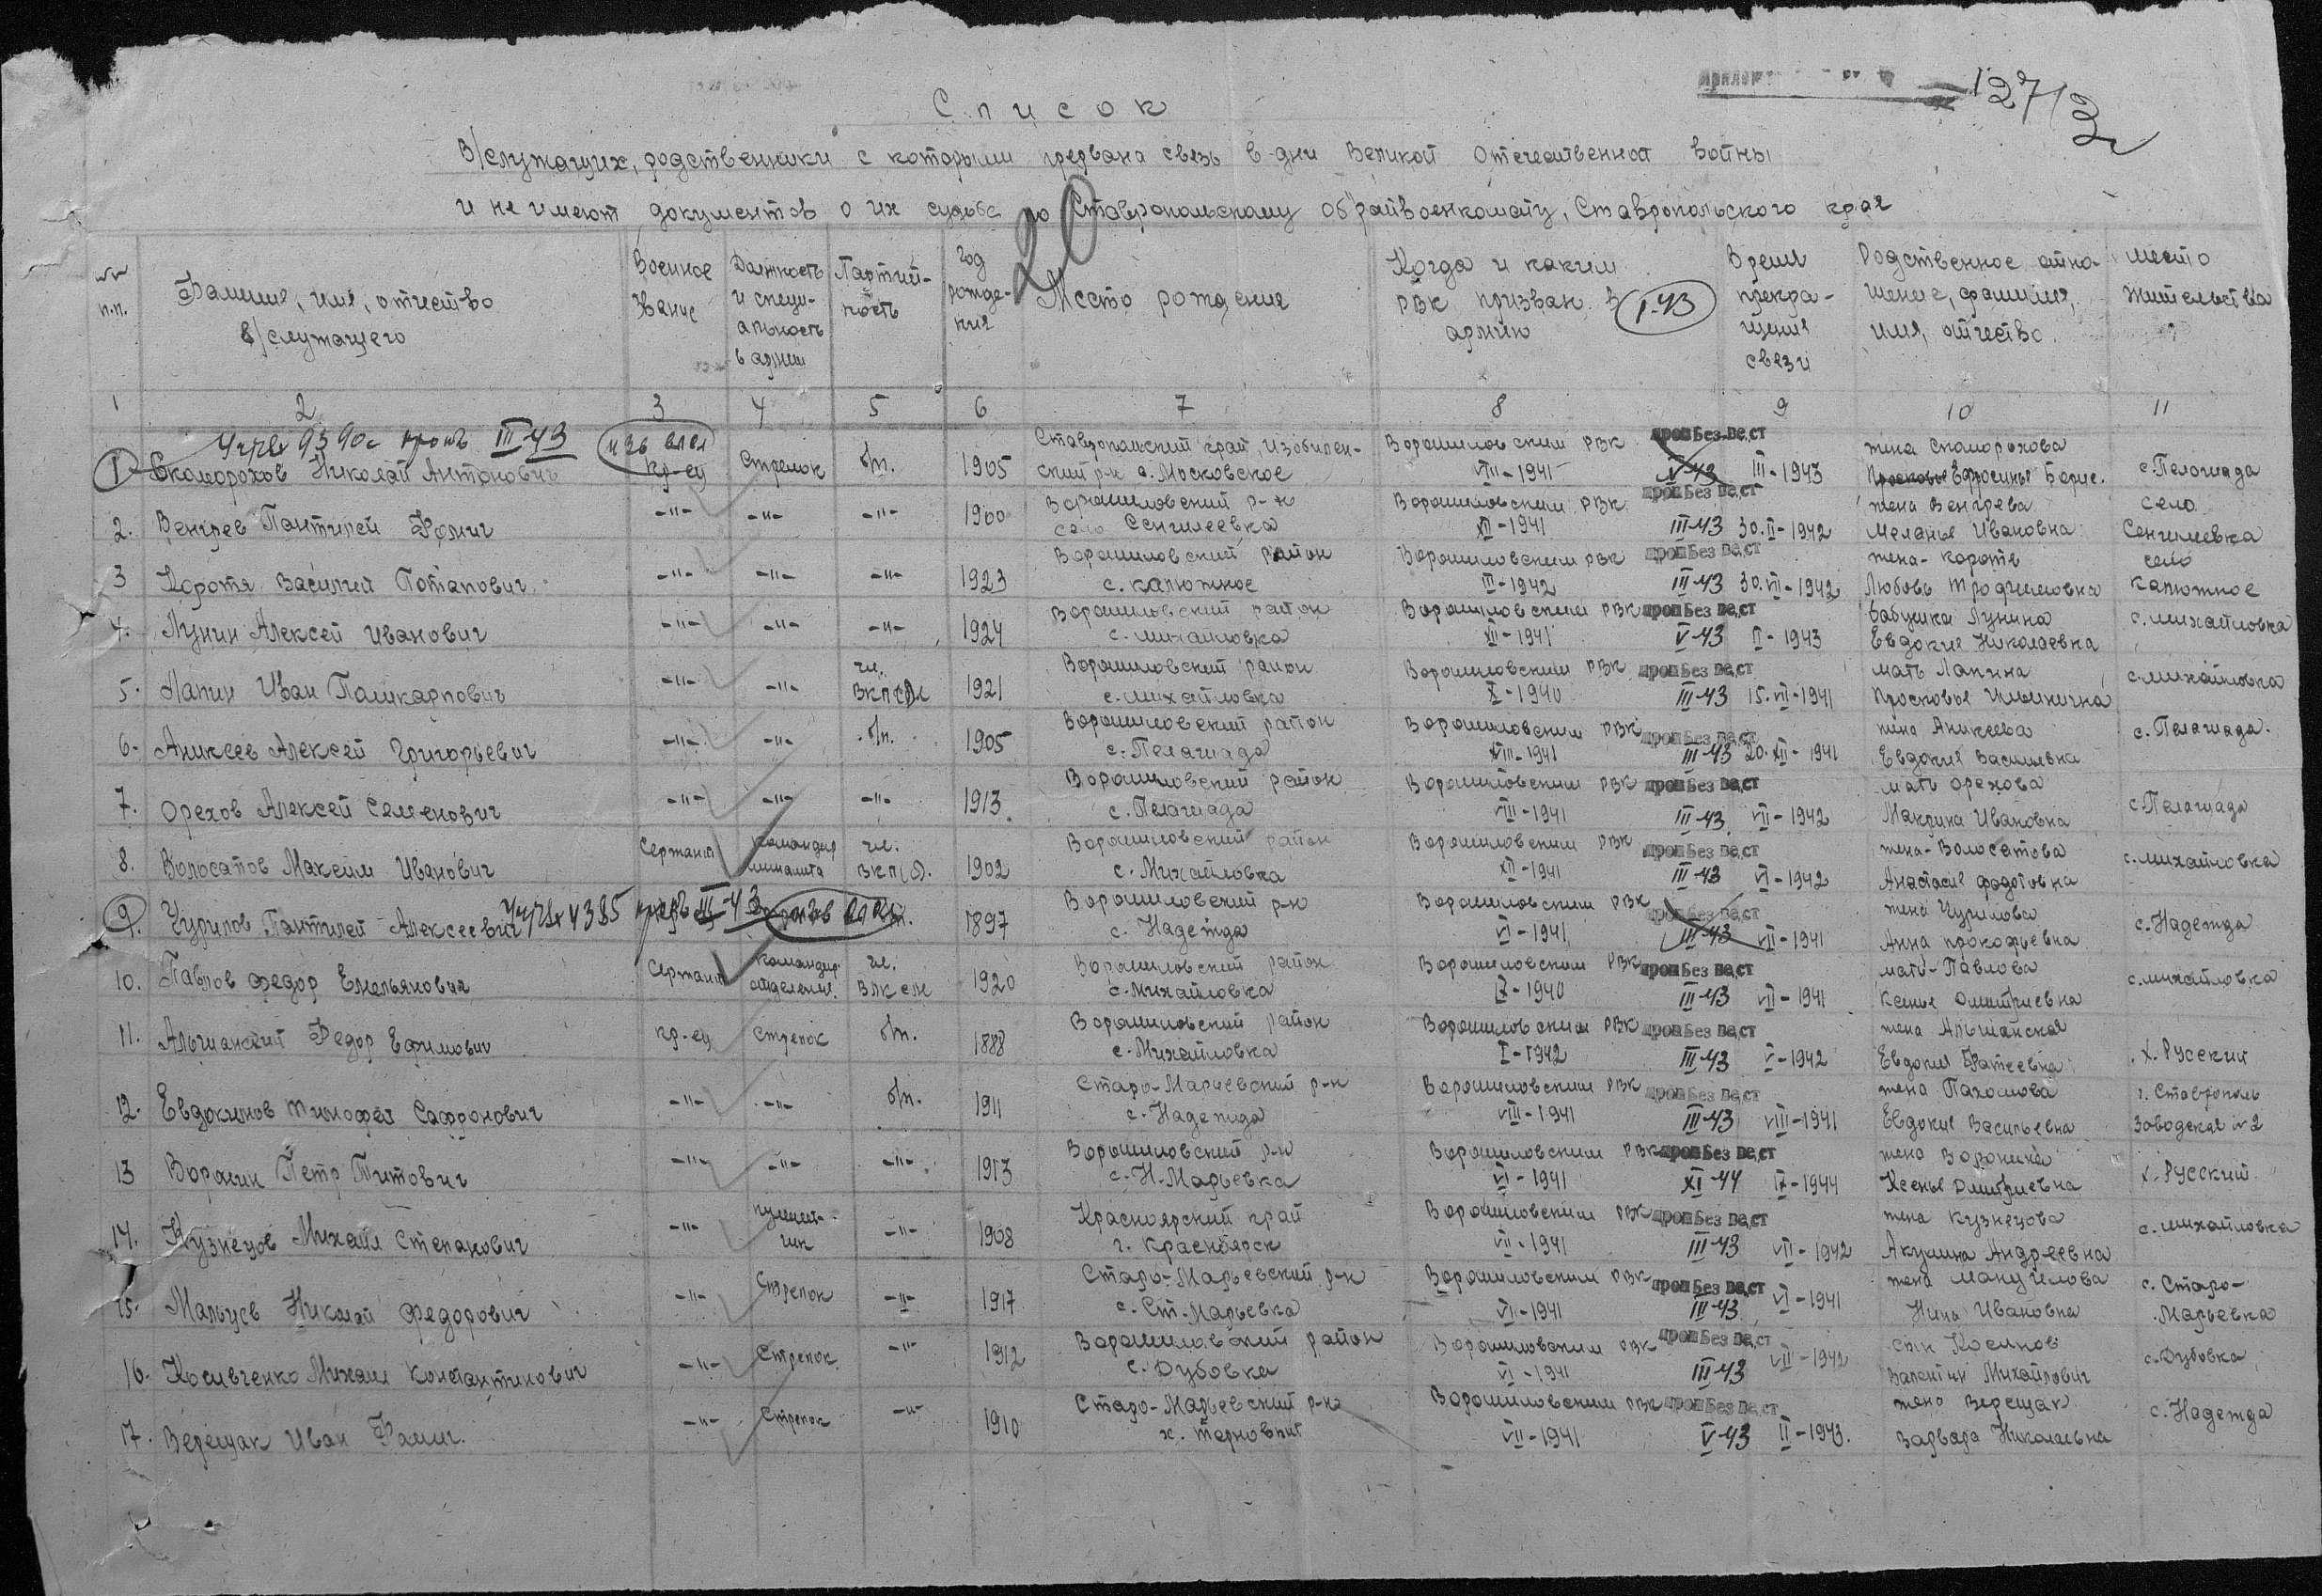 127/3
Список
В/служащих, родственники с которыми прервана связь в дни Великой Отечественной войны
и не имеют документов о их судьбе по Ставропольскому об'райвоенкомату, Ставропольского края
20
№№ п.п.
Фамилия, имя, отчество в/служащего
Военное звание
Должность и специальность в армии
Партийность
Год рождения
Место рождения
Когда и каким РВК призван в армию
1-43
Время прекращения связи
Родственное отношение, фамилия, имя, отчество.
место жительства
1 2 3 4 5 6 7 8 9 10 11
9390с III-43
1 Скоморохов Николай Антонович кр-ец Стрелок б/п. 1905 Ставропольский край, Изобилен-
ский р-н с. Московское Ворошиловским РВК VIII-1941 проп Без вест V-43 III-1943 жена Скоморохова
Ефросинья Борис. с. Пелагиада
2. Венгрев Пантилей Фомич -"- -"- -"- 1900 Ворошиловский р-н
село Сенгилеевка Ворошиловским РВК XII-1941 проп Без вест III-43 30.II-1942 жена Венгрева
Меланья Ивановна село Сенгилеевка
3 Коротя Василий Потапович -"- -"- -"- 1923 Ворошиловский район
с. Калюжное Ворошиловским РВК III-1942 проп Без вест III-43 30.VII-1942 жена-Коротя
Любовь Трофимовна село Калюжное
4. Лунин Алексей Иванович -"- -"- -"- 1924 Ворошиловский район
с. Михайловка Ворошиловским РВК XII-1941 проп Без вест V-43 II-1943 бабушка Лунина
Евдокия Николаевна с. Михайловка
5. Лапин Иван Поликарпович -"- -"- чл. 1921 Ворошиловский район
с. Михайловка Ворошиловским РВК X-1940 проп Без вест III-43 15.VII-1941 мать Лапина
Просковья с. Михайловка
6. Аникеев Алексей Григорьевич -"- -"- б/п. 1905 Ворошиловский район
с. Пелагиада Ворошиловским РВК VIII-1941 проп Без вест III-43 20.XII-1941 жена Аникеева
Евдокия Васильевна с. Пелагиада.
7. Орехов Алексей Семенович -"- -"- -"- 1913 Ворошиловский район
с. Пелагиада Ворошиловским РВК VIII-1941 проп Без вест III-43 VII-1942 мать Орехова
Макрина Ивановна с. Пелагиада
8. Волосатов Максим Иванович Сержант Командир миномета чл. ВКП(б). 1902 Ворошиловский район
с. Михайловка Ворошиловским РВК XII-1941 проп Без вест III-43 VI-1942 жена-Волосатова
Анастасия Федотовна с. Михайловка
9. Чурилов Пантилей Алексеевич 4385 III-43 1897 Ворошиловский р-н
с. Надежда Ворошиловским РВК VI-1941 проп Без вест III-43 VII-1941 жена Чурилова
Анна Прокофьевна с. Надежда
10. Павлов Федор Емельянович Сержант Командир отделения. чл. ВЛКСМ 1920 Ворошиловский район
с. Михайловка Ворошиловским РВК IX-1940 проп Без вест III-43 VII-1941 мать-Павлова
Ксенья Дмитриевна с. Михайловка
11. Альчанский Федор Ефимович кр-ец Стрелок б/п. 1888 Ворошиловский район
с. Михайловка Ворошиловским РВК I-1942 проп Без вест III-43 V-1942 жена Альчанская
Евдокия Фатеевна х. Русский
12. Евдокимов Тимофей Сафронович -"- -"- б/п. 1911 Старо-Марьевский р-н
с. Надежда Ворошиловским РВК VIII-1941 проп Без вест III-43 VIII-1941 жена Пахомова
Евдокия Васильевна г. Ставрополь Заводская № 2
13 Воронин Петр Титович -"- -"- -"- 1913 Ворошиловский р-н
с. Н-Марьевка Ворошиловским РВК VI-1941 проп Без вест XI-44 IX-1944 жена Воронина
Ксенья Дмитриевна х. Русский
14. Кузнецов Михаил Степанович -"- пулеметчик -"- 1908 Красноярский край
г. Красноярск Ворошиловским РВК VII-1941 проп Без вест III-43 VII-1942 жена Кузнецова
Акулина Андреевна с. Михайловка
15. Мальцев Николай Федорович -"- Стрелок -"- 1917 Старо-Марьевский р-н
с. Ст-Марьевка Ворошиловским РВК VI-1941 проп Без вест III-43 VI-1941 жена Мануйлова
Нина Ивановна с. Старо-Марьевка
16. Косивченко Михаил Константинович -"- Стрелок -"- 1912 Ворошиловский район
с. Дубовка Ворошиловским РВК VI-1941 проп Без вест III-43 VII-1942 сын Косинов
Валентин Михайлович с. Дубовка
17. Верещак Иван Фомич. -"- Стрелок -"- 1910 Старо-Марьевский р-н
х. Терновый Ворошиловским РВК VII-1941 проп Без вест V-43 II-1943. жена Верещак
Варвара Николаевна с. Надежда